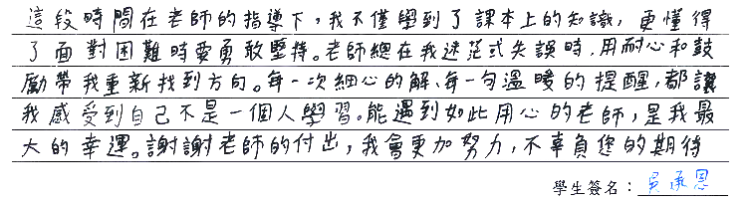 這段時間在老師的指導下，我不僅學到了課本上的知識，更懂得
了面對困難時要勇敢堅持。老師總在我迷茫或失誤時，用耐心和鼓
勵帶我重新找到方向。每一次細心的解、每一句溫暖的提醒，都讓
我感受到自己不是一個人學習。能遇到如此用心的老師，是我最
大的幸運。謝謝老師的付出，我會更加努力，不辜負您的期待
學生簽名：吳承恩